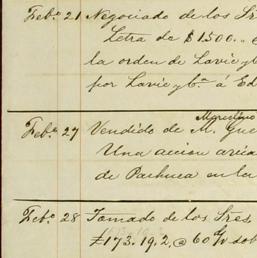 Feb.º 21 Negociado de los Sres
Letra de $1500..
la orden de Lavie y
por Lavie y Cª á Ed
Marcelino
Feb.º 27 Vendido de M. Gue
Una accion
de Pachuca en la
Feb.º 28 Tomado de los Sres.
£173.19.2, @ 60 d/v sob